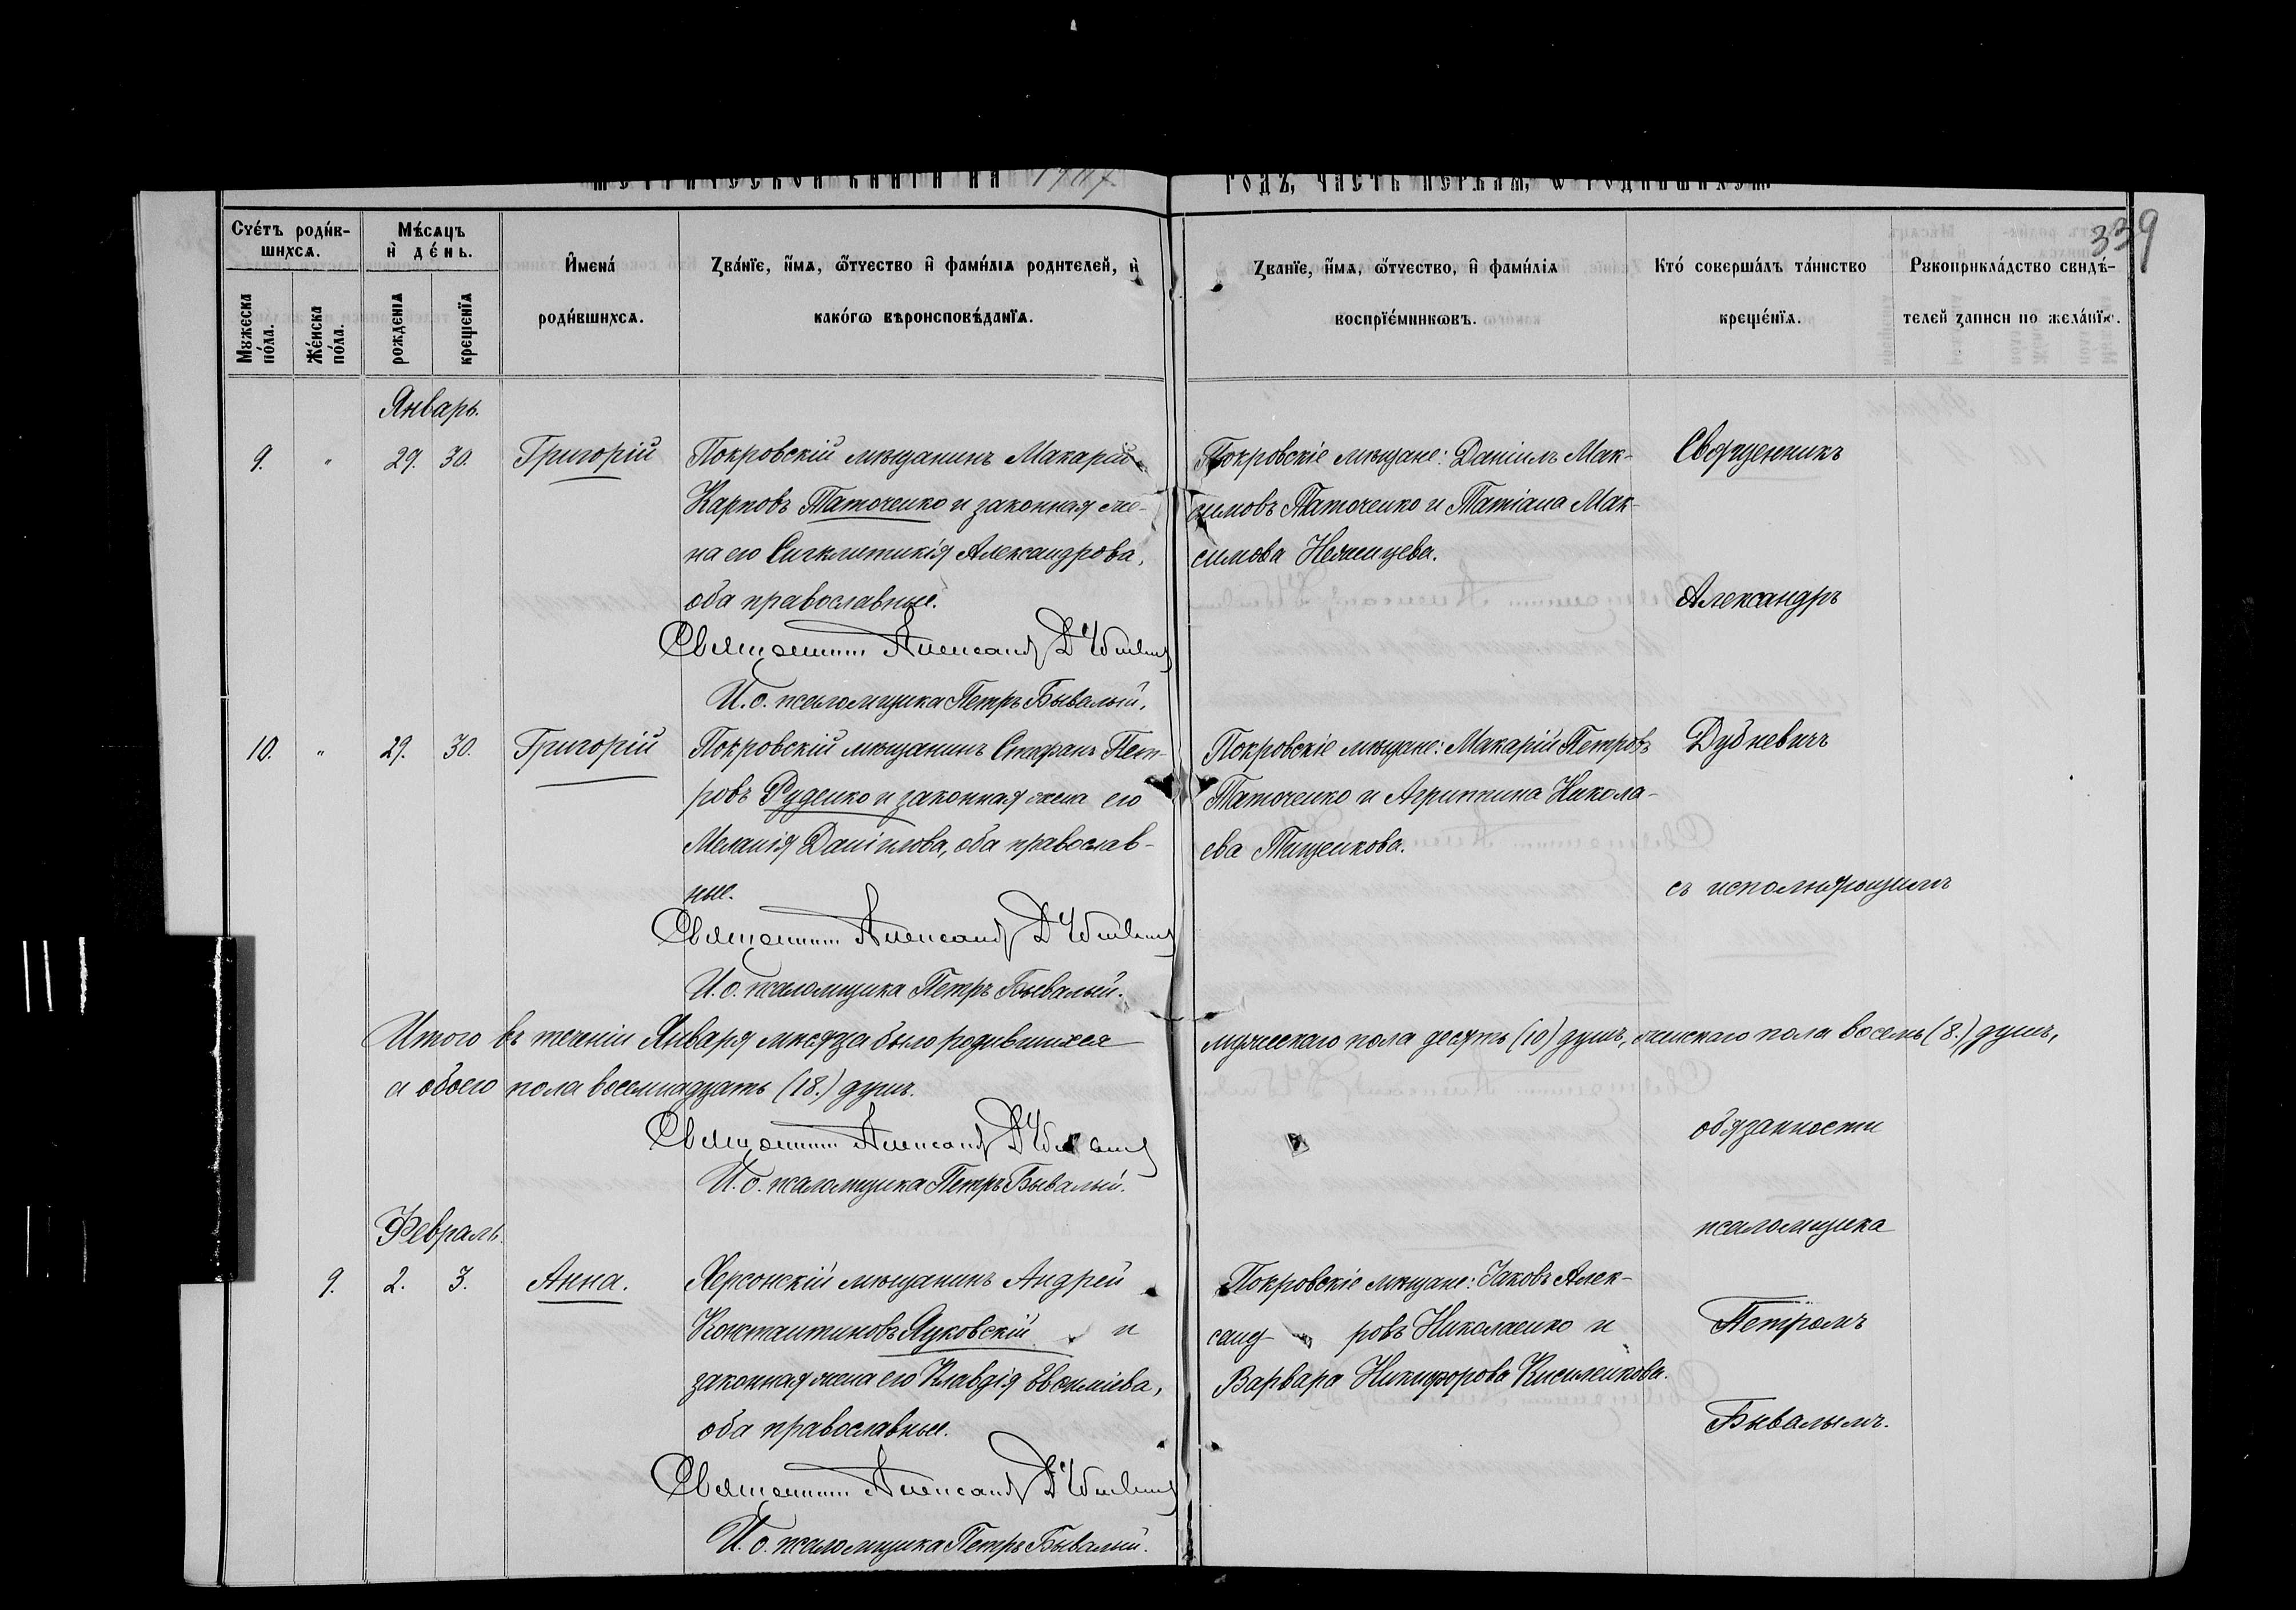 МЕТРИЧЕСКОЙ КНИГИ НА
ГОДЪ, ЧАСТЬ ПЕРВАЯ, Ѡ РОДИВШИХСЯ.
339
Счéтъ роди́вшихсѧ.
Мꙋжеска по́ла.
Же́нска по́ла.
Мѣ́сѧцъ и҆ де́нь.
рожденїѧ
крещенїѧ
И҆мена́ роди́вшихсѧ.
Зва́нїе, и҆́мѧ, ѻ҆́тчество и҆ фами́лїѧ родителей, и҆ како́гѡ вѣроисповѣ́данїѧ.
Званїе, и҆́мѧ, ѻ҆́тчество, и҆ фами́лїѧ воспрїе́мникѡвъ.
Кто́ соверша́лъ та́инство креще́нїѧ.
Рꙋкоприкла́дство свидѣ́телей записи по жела́нїю.
Январь.
9. " 29. 30. Григорій
Покровскій мѣщанинъ Макарій
Карповъ Таточенко и законная же-
на его Сигклитикія Александрова,
оба православные.
Священникъ Александръ Дубневичъ
И. о. псаломщика Петръ Бывалый.
Покровскіе мѣщане: Даніилъ Мак-
симовъ Таточенко и Татіана Мак-
симова
Священникъ
Александръ
10. " 29. 30. Григорій
Покровскій мѣщанинъ Стефанъ Пет-
ровъ Руденко и законная жена его
Меланія Даніилова, оба православ-
ные.
Священникъ Александръ Дубневичъ
И. о. псаломщика Петръ Бывалый.
Покровскіе мѣщане: Макарій Петровъ
Таточенко и Агриппина Никола-
ева Тищенкова.
Дубневичъ
съ исполняющимъ
Итого въ теченіи Января мѣсяца было родившихся мужескаго пола десять (10) душъ, женскаго пола восемь (8.) душъ,
а обоего пола восемнадцать (18.) душъ.
Священникъ Александръ Дубневичъ
И. о. псаломщика Петръ Бывалый.
обязанности
псаломщика
Февраль.
9. 2. 3. Анна.
Херсонскій мѣщанинъ Андрей
Константиновъ Яцковскій и
законная жена его Клавдія Евфиміева,
оба православные.
Священникъ Александръ Дубневичъ
И. о. псаломщика Петръ Бывалый.
Покровскіе мѣщане: Іаковъ Алек-
санд ровъ Николаенко и
Варвара Никифорова Кисиленкова.
Петромъ
Бывалымъ.